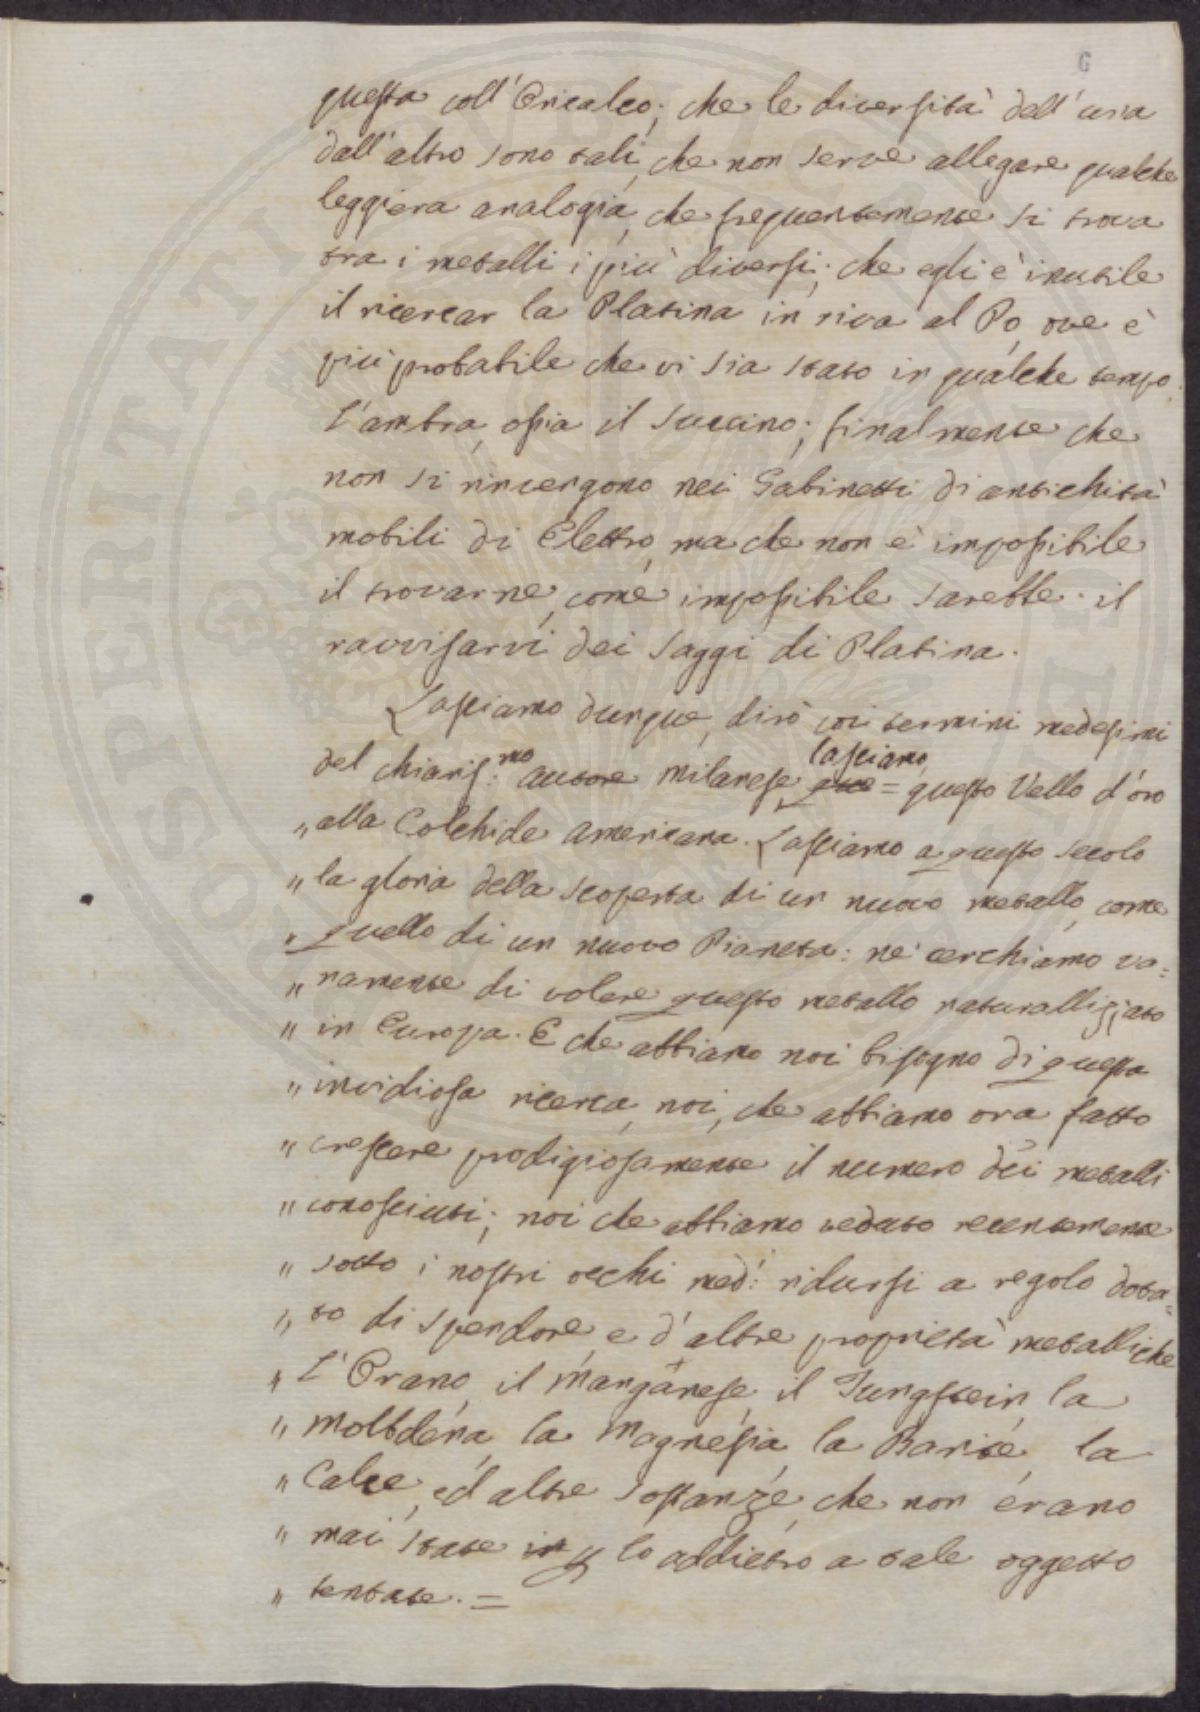 6
questa coll'Oricalco; che le diversità dell'una
dall'altro sono tali, che non serve allegare qualche
leggiera analogia, che frequentemente si trova
tra i metalli i più diversi; che egli è inutile
il ricercar la Platina in riva al Po, ove è
più probabile che vi sia stato in qualche tempo
l'ambra, ossia il succino; finalmente che
non si rinvengono nei Gabinetti di antichità
mobili di Elettro, ma che non è impossibile
il trovarne, come impossibile sarebbe il
ravvisarvi dei saggi di Platina.
Lasciamo dunque, dirò coi termini medesimi
del chiariss:mo autore Milanese, lasciamo = questo Vello d'oro
„ alla Colchide americana. Lasciamo a questo secolo
„ la gloria della scoperta di un nuovo metallo, come
„ quello di un nuovo Pianeta: nè cerchiamo va=
„ namente di volere questo metallo naturallizzato
„ in Europa. E che abbiamo noi bisogno di questa
„ invidiosa ricerca, noi, che abbiamo ora fatto
„ crescere prodigiosamente il numero dei metalli
„ conosciuti; noi che abbiamo veduto recentemente
„ sotto i nostri occhi med: ridursi a regolo dota=
„ to di spendore, e d'altre proprietà metalliche
„ l'Urano, il Manganese, il Tungstein, la
„ Molbdena, la Magnesia, la Barite, la
„ Calce, ed altre sostanze, che non erano
„ mai state lo addietro a tale oggetto
„ tentate. =
SOSPERITATI PVBLICAE AVGENDAE